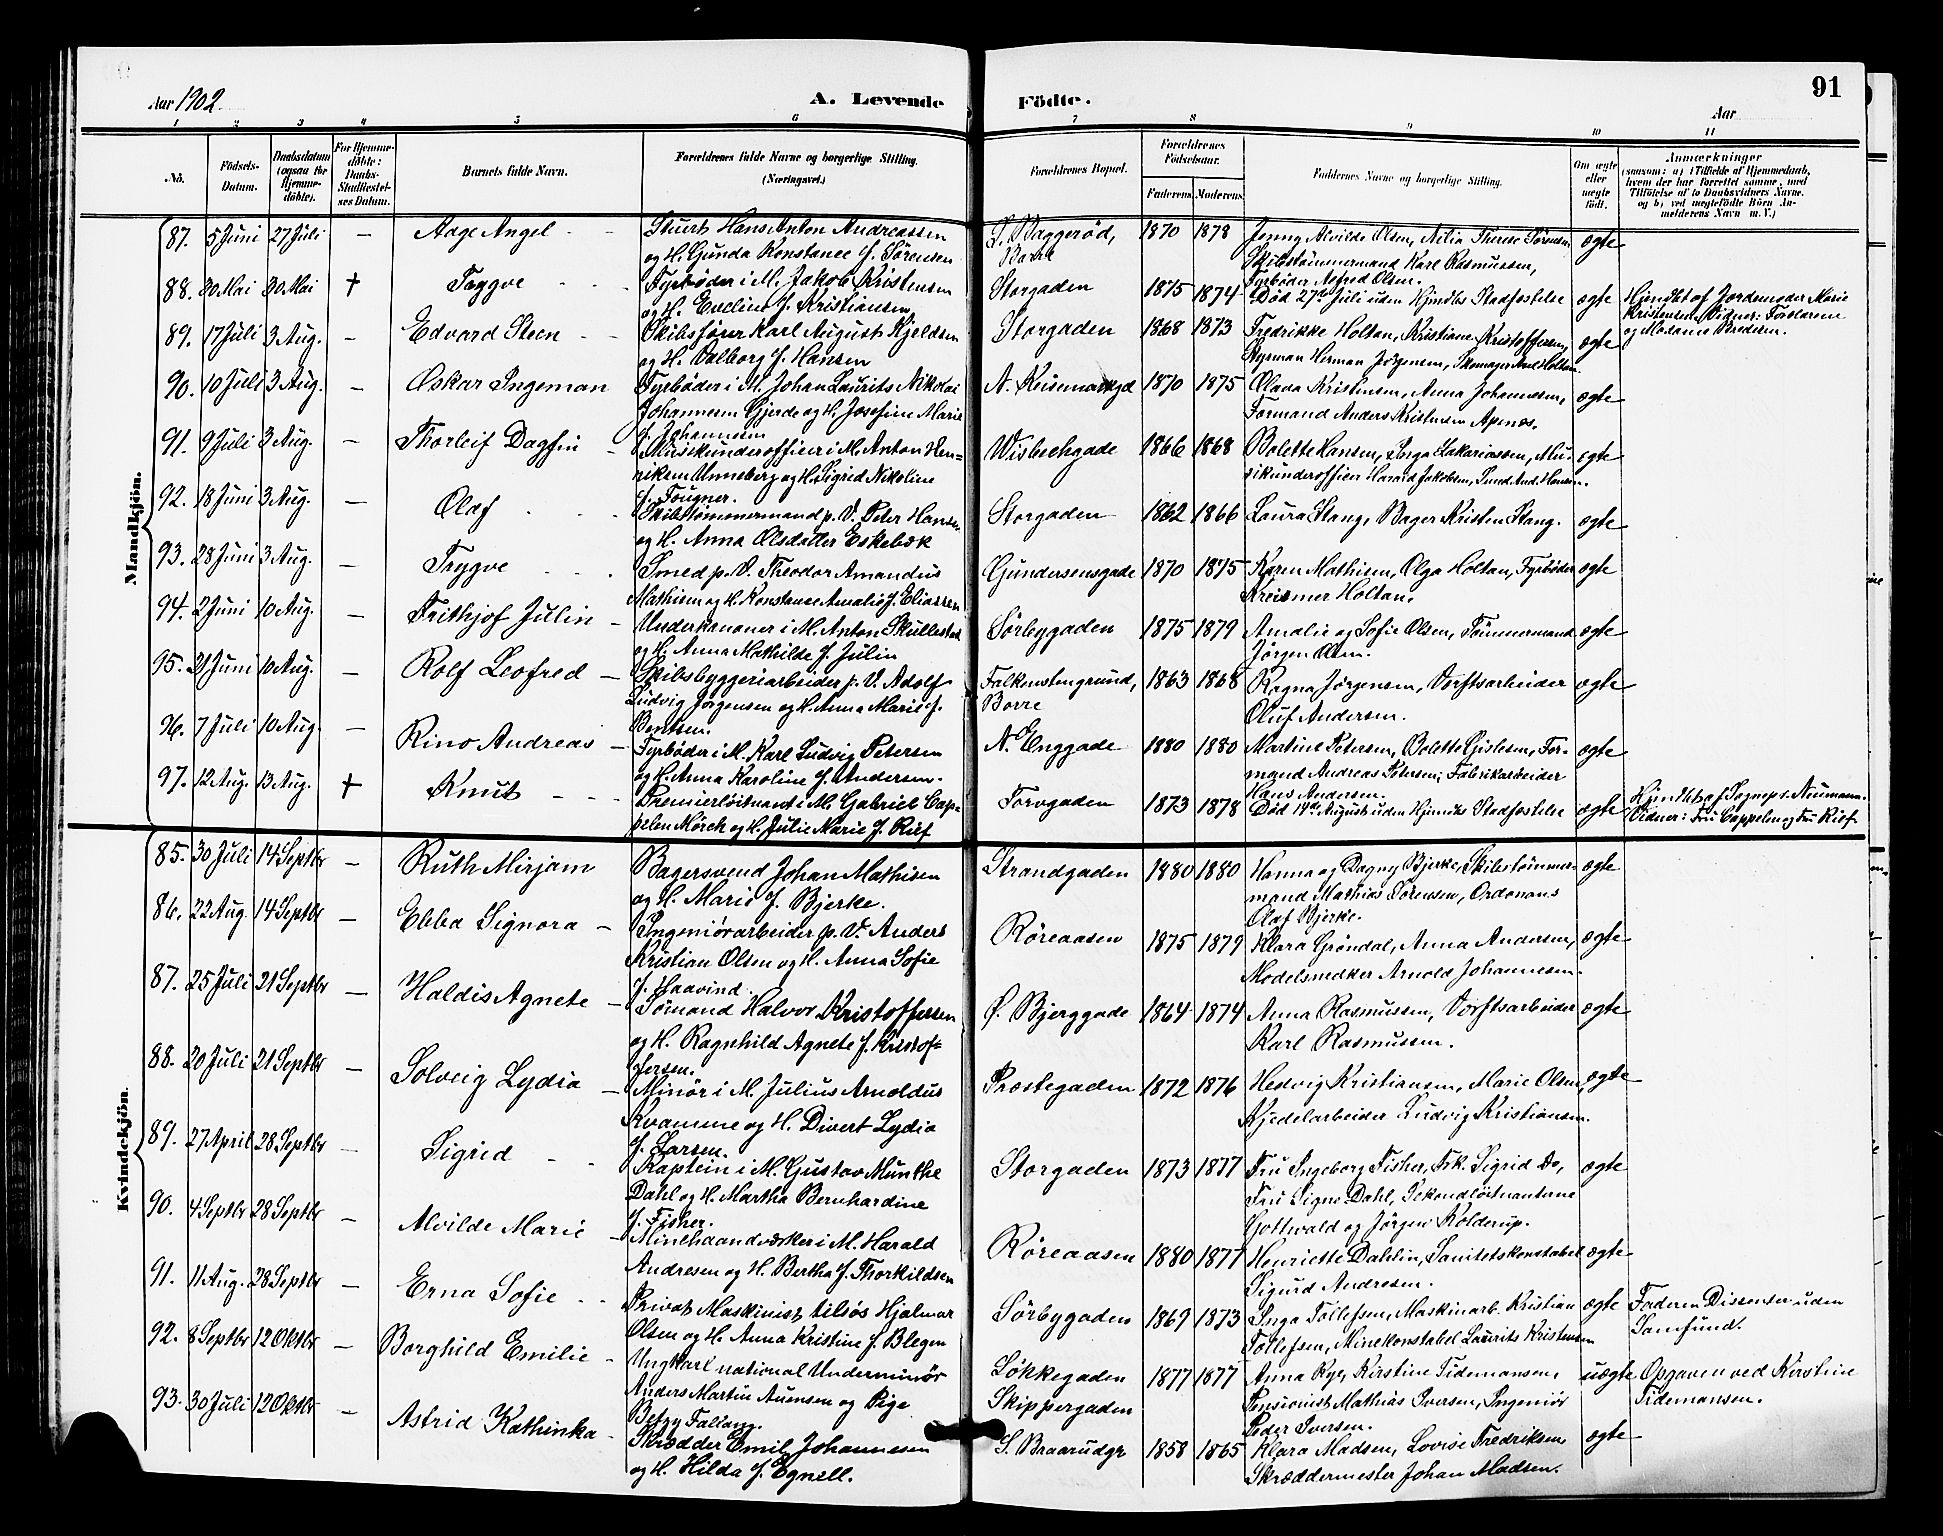 91
Aar 1902.
A. Levende
Födte.
Aar
1 2 3 4 5 6 7 8 9 10 11
No.
Födsels-Datum.
Daabsdatum (ogsaa for Hjemme-döbte).
For Hjemme-döbte: Daabs-Stadfæstel-ses Datum.
Barnets fulde Navn.
Forældrenes fulde Navne og borgerlige Stilling. (Næringsvei.)
Forældrenes Bopæl.
Forældrenes Födselsaar.
Faderens. Moderens.
Faddernes Navne og borgerlige Stilling.
Om ægte eller uægte födt.
Anmærkninger
(saasom: a) i Tilfælde af Hjemmedaab, hvem der har forrettet samme, med Tilföielse af to Daabsvidners Navne. og b) ved uegtefödte Börn An-melderens Navn m. V.)
Mandkjön.
87. 5 Juni 27 Juli — Aage Angel - - Stuert Hans Anton Andreassen
og H. Gunda Konstance f. Sørensen
Baggerød, Borre 1870 1878 Jenny Alvilde Olsen, Therese Sørensen
Skibstømmermand Karl Rasmussen,
Fyrbøder Alfred Olsen. ægte
88. 30 Mai 30 Mai + Trygve - - - Fyrbøder i M. Jakob Kristensen
og H. Eveline f. Kristiansen
Storgaden 1875 1874 Død 27de Juli uden Hjmdbs Stadfæstelse ægte
Hjmdbt af Jordemoder Marie
Kristensen. Vidner: Forældrene
og Madame Bredesen.
89. 17 Juli 3 Aug. — Edvard Steen - - Skibsfører Karl August Kjeldsen
og H. Valborg f. Hansen
Storgaden 1868 1873 Fredrikke Holtan, Kristiane Kristoffersen,
Styrmand Herman Jørgensen, Skomager Axel Holtan. ægte
90. 10 Juli 3 Aug. — Oskar Ingeman Fyrbøder i M. Johan Laurits Nikolai
Johannesen Gjerde og H. Josefine Marie
f. Johannesen
N. Keisemarkgd 1870 1875 Olava Kristensen, Anna Johannesen,
Formand Anders Kristensen Apenes. ægte
91. 9 Juli 3 Aug. — Thorleif Dagfin - Musikunderofficer i M. Anton Hen-
riksen Unneberg og H. Sigrid Nikoline
f. Tougner.
Wisbechgade 1866 1868 Bolette Hansen, Inga Sakariassen, Mu-
sikunderofficer Harald Jakobsen, And. Hansen. ægte
92. 18 Juni 3 Aug. — Olaf - - - Skibstømmermand p. V. Peter Hansen
og H. Anna Olsdatter Eskebæk
Storgaden 1862 1866 Laura Stang, Bager Kristen Stang. ægte
93. 28 Juni 3 Aug. — Trygve - - - Smed p. V. Theodor Amandus
Mathisen og H. Konstance Amalie f. Eliassen
Gundersensgade 1870 1875 Karen Mathisen, Olga Holtan, Fyrbøder
Holtan. ægte
94. 2 Juni 10 Aug. — Frithjof Julin - Underkanoner i M. Anton Skullestad
og H. Anna Mathilde f. Julin
Sørbygaden 1875 1879 Amalie og Sofie Olsen, Tømmermand
Jørgen Olsen. ægte
95. 21 Juni 10 Aug. — Rolf Leofred — Skibsbyggeriarbeider p. V. Adolf
Ludvig Jørgensen og H. Anna Marie f.
Berntsen.
Falkenstengrund, Borre 1863 1868 Ragna Jørgensen, Værftsarbeider
Oluf Andersen. ægte
96. 7 Juli 10 Aug. — Rino Andreas — Fyrbøder i M. Karl Ludvig Petersen
og H. Anna Karoline f. Andersen.
N. Enggade 1880 1880 Martine Petersen, Bolette Gislesen, For-
mand Andreas Petersen, Fabrikarbeider
Hans Andersen. ægte
97. 12 Aug. 13 Aug. + Knut - - - Premierløitnant i M. Gabriel Cap-
pelen Mørch og H. Julie Marie f. Riif
Torvgaden 1873 1878 Død 14de August uden Hjmdbs Stadfæstelse ægte
Hjmdbt af Sognepr. Neumann.
Vidner: Fru Cappelen og Fru Riif
Kvindekjön.
85. 30 Juli 14 Septbr — Ruth Mirjam Bagersvend Johan Mathisen
og H. Marie f. Bjerke.
Strandgaden 1880 1880 Hanna og Dagny Bjerke, Skibstømmer-
mand Mathias Sørensen, Ordonans
Olaf Bjerke. ægte
86. 22 Aug. 14 Septbr — Ebba Signora — Ingeniørarbeider p. V. Anders
Kristian Olsen og H. Anna Sofie
f. Haavind.
Røreaasen 1875 1879 Klara Grøndal, Anna Andersen,
Modelsnedker Arnold Johannesen. ægte
87. 25 Juli 21 Septbr — Haldis Agnete — Sømand Halvor Kristoffersen
og H. Ragnhild Agnete f. Kristof-
fersen.
Ø. Bjerggade 1864 1874 Anna Rasmussen, Værftsarbeider
Karl Rasmussen. ægte
88. 20 Juli 21 Septbr — Solveig Lydia — Minør i M. Julius Arnoldus
Kvamme og H. Divert Lydia
f. Larsen.
Præstegaden 1872 1876 Hedvig Kristiansen, Marie Olsen,
Kjedelarbeider Ludvig Kristiansen. ægte
89. 27 April 28 Septbr — Sigrid - - Kaptein i M. Gustav Munthe
Dahl og H. Martha Bernhardine
f. Fisher.
Storgaden 1873 1877 Fru Ingeborg Fisher, Frk. Sigrid Do,
Fru Signe Dahl, Sekondløitnanterne
Gottwald og Jørgen Kolderup. ægte
90. 4 Septbr 28 Septbr — Alvilde Marie — Minehaandværker i M. Harald
Andresen og H. Bertha f. Thorkildsen
Røreaasen 1880 1877 Henriette Dahlin, Sanitetskonstabel
Sigurd Andresen. ægte
91. 11 Aug. 28 Septbr — Erna Sofie - - Privat Maskinist tilsøs Hjalmar
Olsen og H. Anna Kristine f. Blegen
Sørbygaden 1869 1873 Inga Tollefsen, Maskinarb. Kristian
Tollefsen, Minekonstabel Laurits Kristensen ægte
Faderen Dissenter uden
Samfund.
92. 8 Septbr 12 Oktbr — Borghild Emilie - Ungkarl national Underminør
Anders Martin Auensen og Pige
Betzy Faliang.
Løkkegaden
Skippergaden 1877 1877 Anna Rye, Kirstine Tidemansen,
Pensionist Mathias Iversen, Ingeniør
Peder Iversen. uægte
Opgaven ved Kirstine
Tidemansen.
93. 30 Juli 12 Oktbr — Astrid Kathinka - Skrædder Emil Johannesen
og H. Hilda f. Egnell.
S. Braarudgt 1858 1865 Klara Madsen, Lovise Fredriksen,
Skræddermester Johan Madsen. ægte